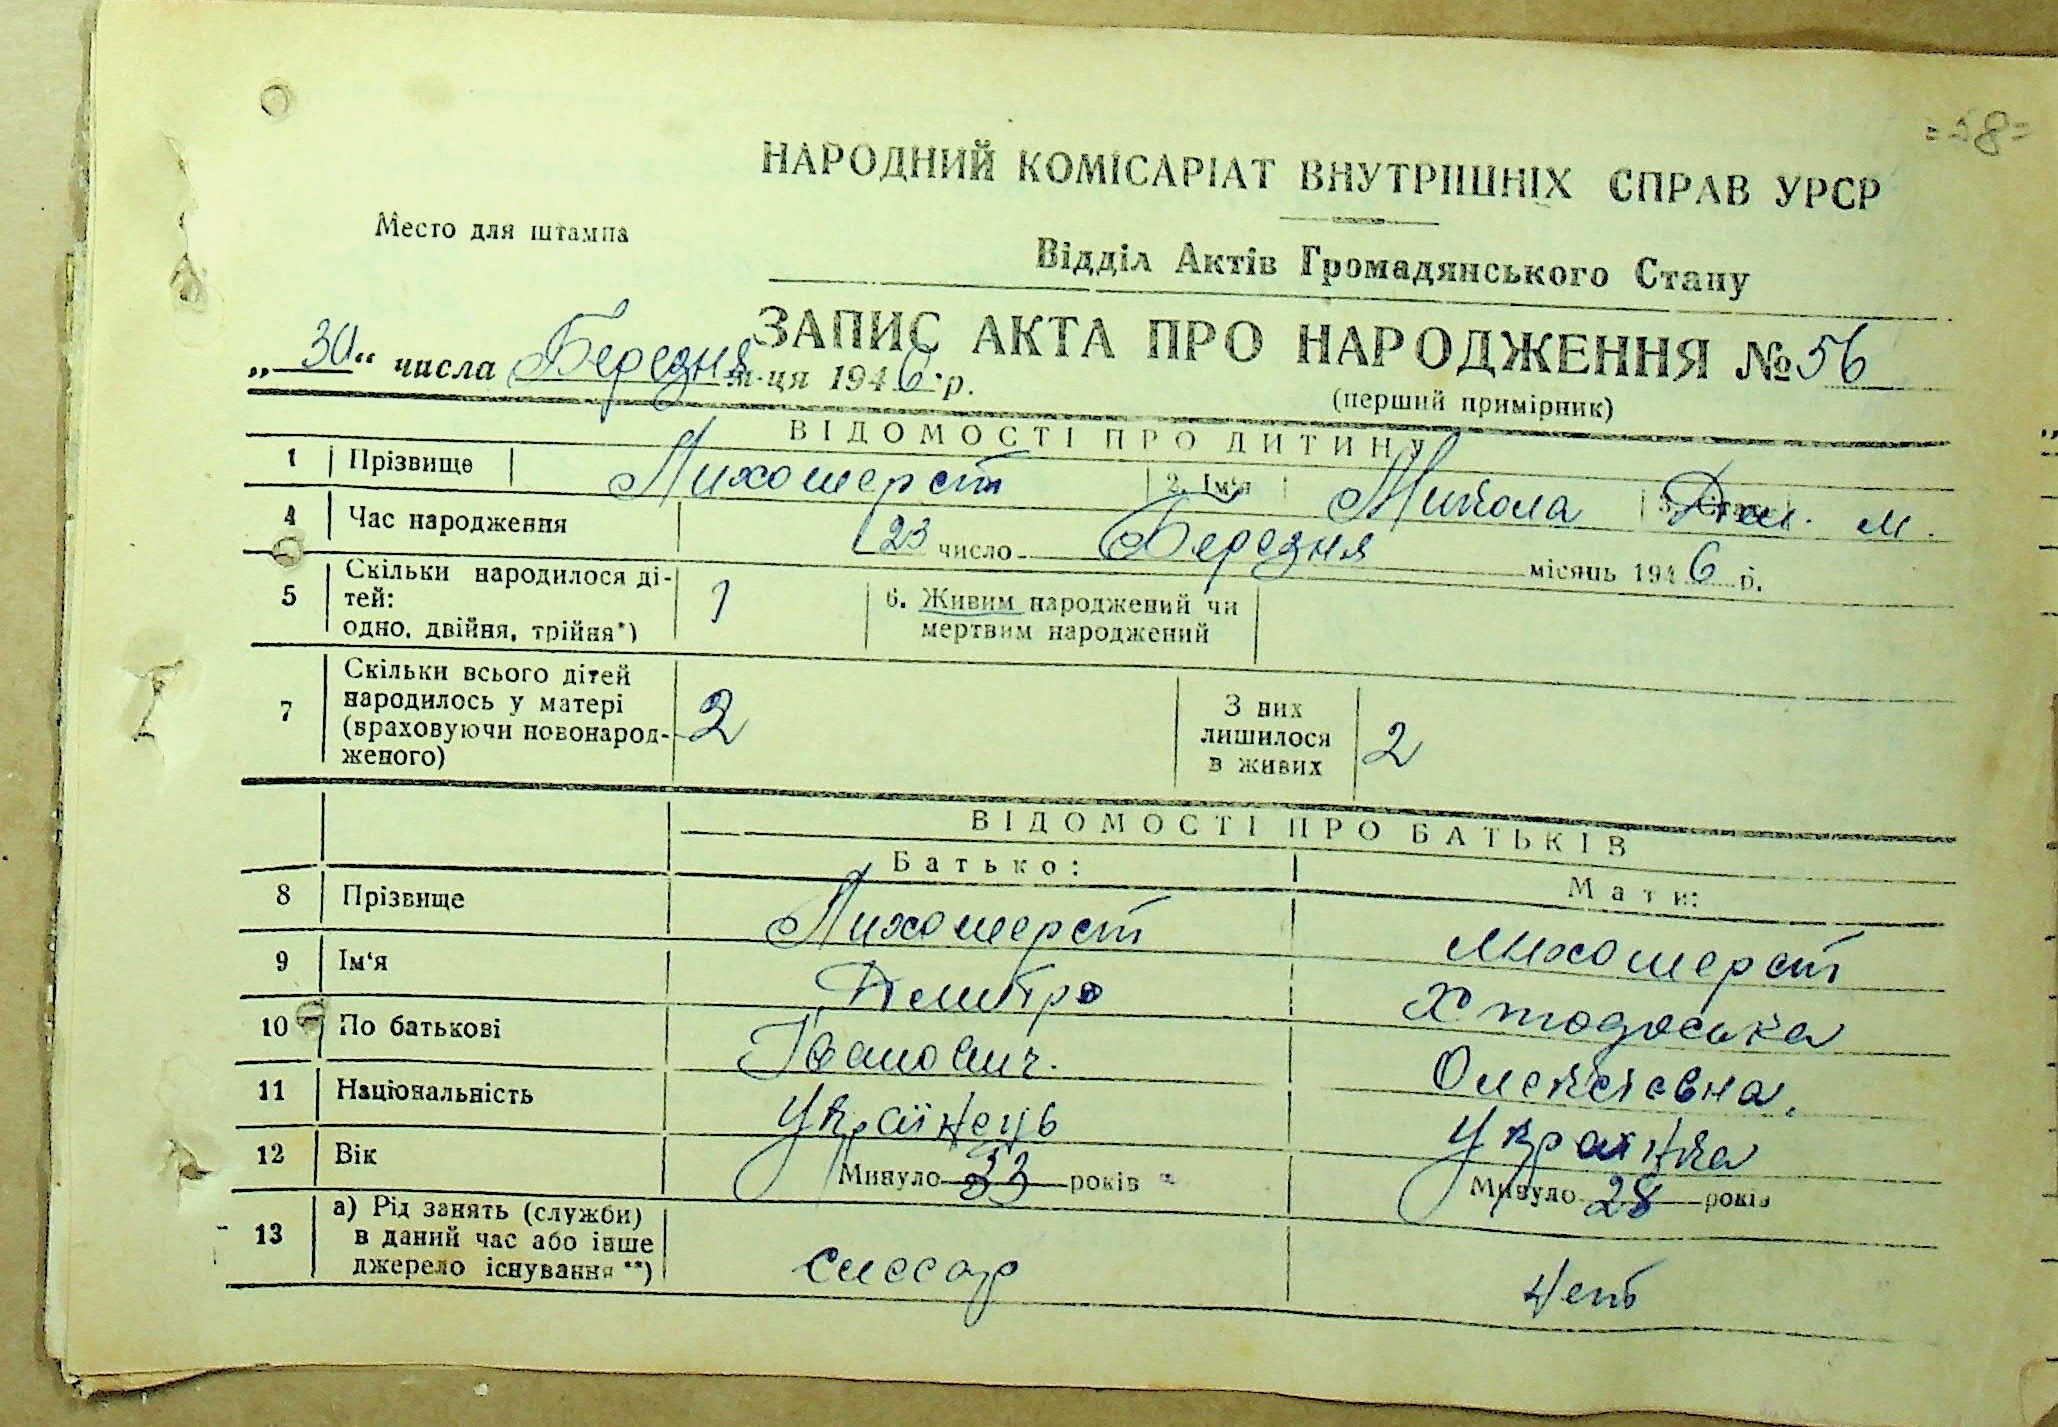 =58=
НАРОДНИЙ КОМІСАРІАТ ВНУТРІШНІХ СПРАВ УРСР
Место для штампа
Відділ Актів Громадянського Стану
ЗАПИС АКТА ПРО НАРОДЖЕННЯ № 56
„30“ числа Березня м-ця 1946 р.
(перший примірник)
ВІДОМОСТІ ПРО ДИТИНУ
1 Прізвище Лихошерст 2. Ім'я Микола Дм. м.
4 Час народження 23 число Березня місяць 1946 р.
5 Скільки народилося ді-
тей:
одно, двійня, трійня*) 1
6. Живим народжений чи
мертвим народжений
7 Скільки всього дітей
народилось у матері
(враховуючи новонарод-
женого) 2
З них
лишилося
в живих 2
ВІДОМОСТІ ПРО БАТЬКІВ
Батько: Мати:
8 Прізвище Лихошерст Лихошерст
9 Ім'я Дмитро Хтодоська
10 По батькові Іванович. Олексіевна.
11 Національність Українець Українка
12 Вік Минуло 33 років Минуло 28 років
13 а) Рід занять (служби)
в даний час або інше
джерело існування **) слесар